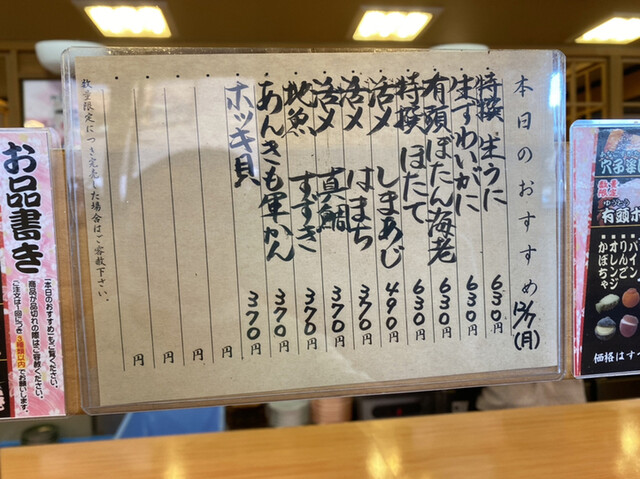 本日のおすすめ 12/7(月)
特撰 生うに 630円
生ずわいがに 630円
有頭ぼたん海老 630円
特撰 ほたて 630円
活〆 しまあじ 490円
活〆 はまち 370円
活〆 真鯛 370円
地魚 すずき 370円
あんきも軍かん 370円
ホッキ貝 370円
円
円
円
円
数量限定につき完売した場合はご容赦下さい。
お品書き
「本日のおすすめ」をご覧ください。
商品が品切れの際はご容赦ください。
ご注文は1回につき3種類以内でお願いします。
有頭ボ
バイン
リンゴ
オレンジ
かぼちゃ
価格はすべ